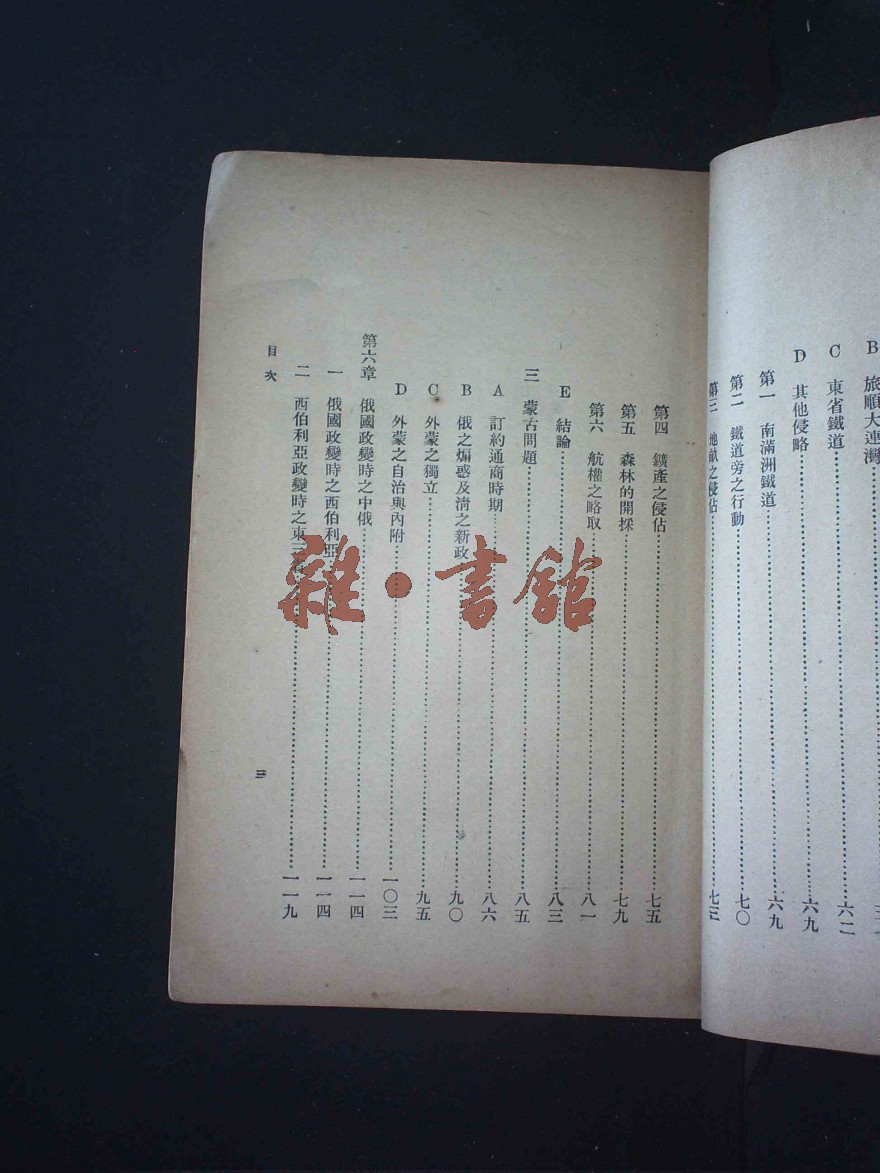 B 旅順大連灣
C 東省鐵道……六二
D 其他侵略……六九
第一 南滿洲鐵道……六九
第二 鐵道旁之行動……七〇
第三 地畝之侵佔……七三
第四 鑛產之侵佔……七五
第五 森林的開採……七九
第六 航權之略取……八一
E 結論……八三
三 蒙古問題……八五
A 訂約通商時期……八六
B 俄之煽惑及清之新政……九〇
C 外蒙之獨立……九五
D 外蒙之自治與內附……一〇三
第六章 俄國政變時之中俄……一一四
一 俄國政變時之西伯利亞……一一四
二 西伯利亞政變時之東三……一一九
目次
三
雜·書館